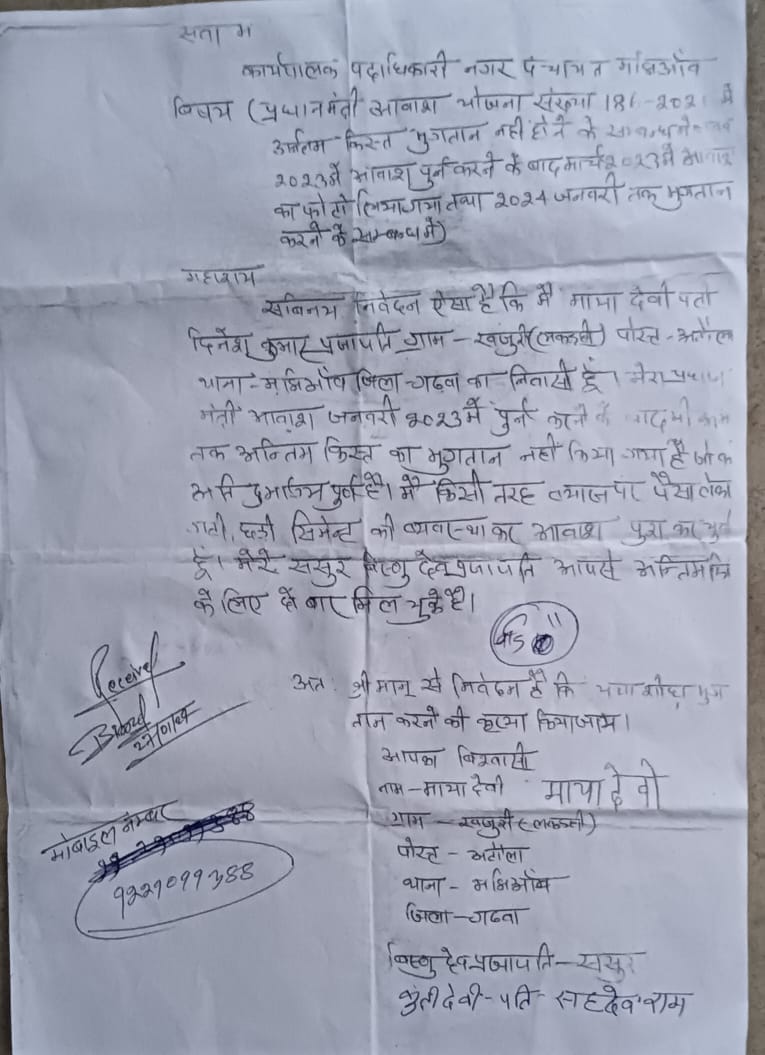 सेवा में
कार्यपालक पदाधिकारी नगर पंचायत मझिआँव
विषय (प्रधानमंत्री आवाश योजना संख्या 181-2021 में
अन्तिम किस्त भुगतान नहीं होने के सम्बन्ध में
2023 में आवाश पुर्न करने के बाद मार्च 2023 में आवाश
का फोटो लिया गया तथा 2024 जनवरी तक भुगतान
करने के सम्बन्ध में)
महाशय
सविनय निवेदन ऐसा है कि मैं माया देवी पती
दिनेश कुमार प्रजापति ग्राम - खजुरी (लकड़ही) पोस्ट - अतौला
थाना - मझिआँव जिला - गढवा का निवासी हूँ। मेरा प्रधान
मंत्री आवाश जनवरी 2023 में पुर्न करने के बाद भी
तक अन्तिम किस्त का भुगतान नहीं किया गया है जो की
अति दुर्भाग्य पुर्ण है। मैं किसी तरह व्याज पर पैसा लेकर
गिटी, छड़ सिमेन्ट की व्यवस्था कर आवाश पुरा कर चुकी
हूँ। मेरे ससुर विष्णु देव प्रजापति आपसे अन्तिम
के लिए दो बार मिल चुके है।
वार्ड
अतः श्री मान् से निवेदन है कि यथा शीघ्र भुग
तान करने की कृप्या किया जाय।
Received
आपका विश्वासी
नाम - माया देवी माया देवी
ग्राम - खजुरी (लकड़ही)
मोबाइल नम्बर
9229099388
पोस्ट - अतौला
थाना - मझिआँव
जिला - गढवा
विष्णु देव प्रजापति - ससुर
देवी - पति - सहदेव राम